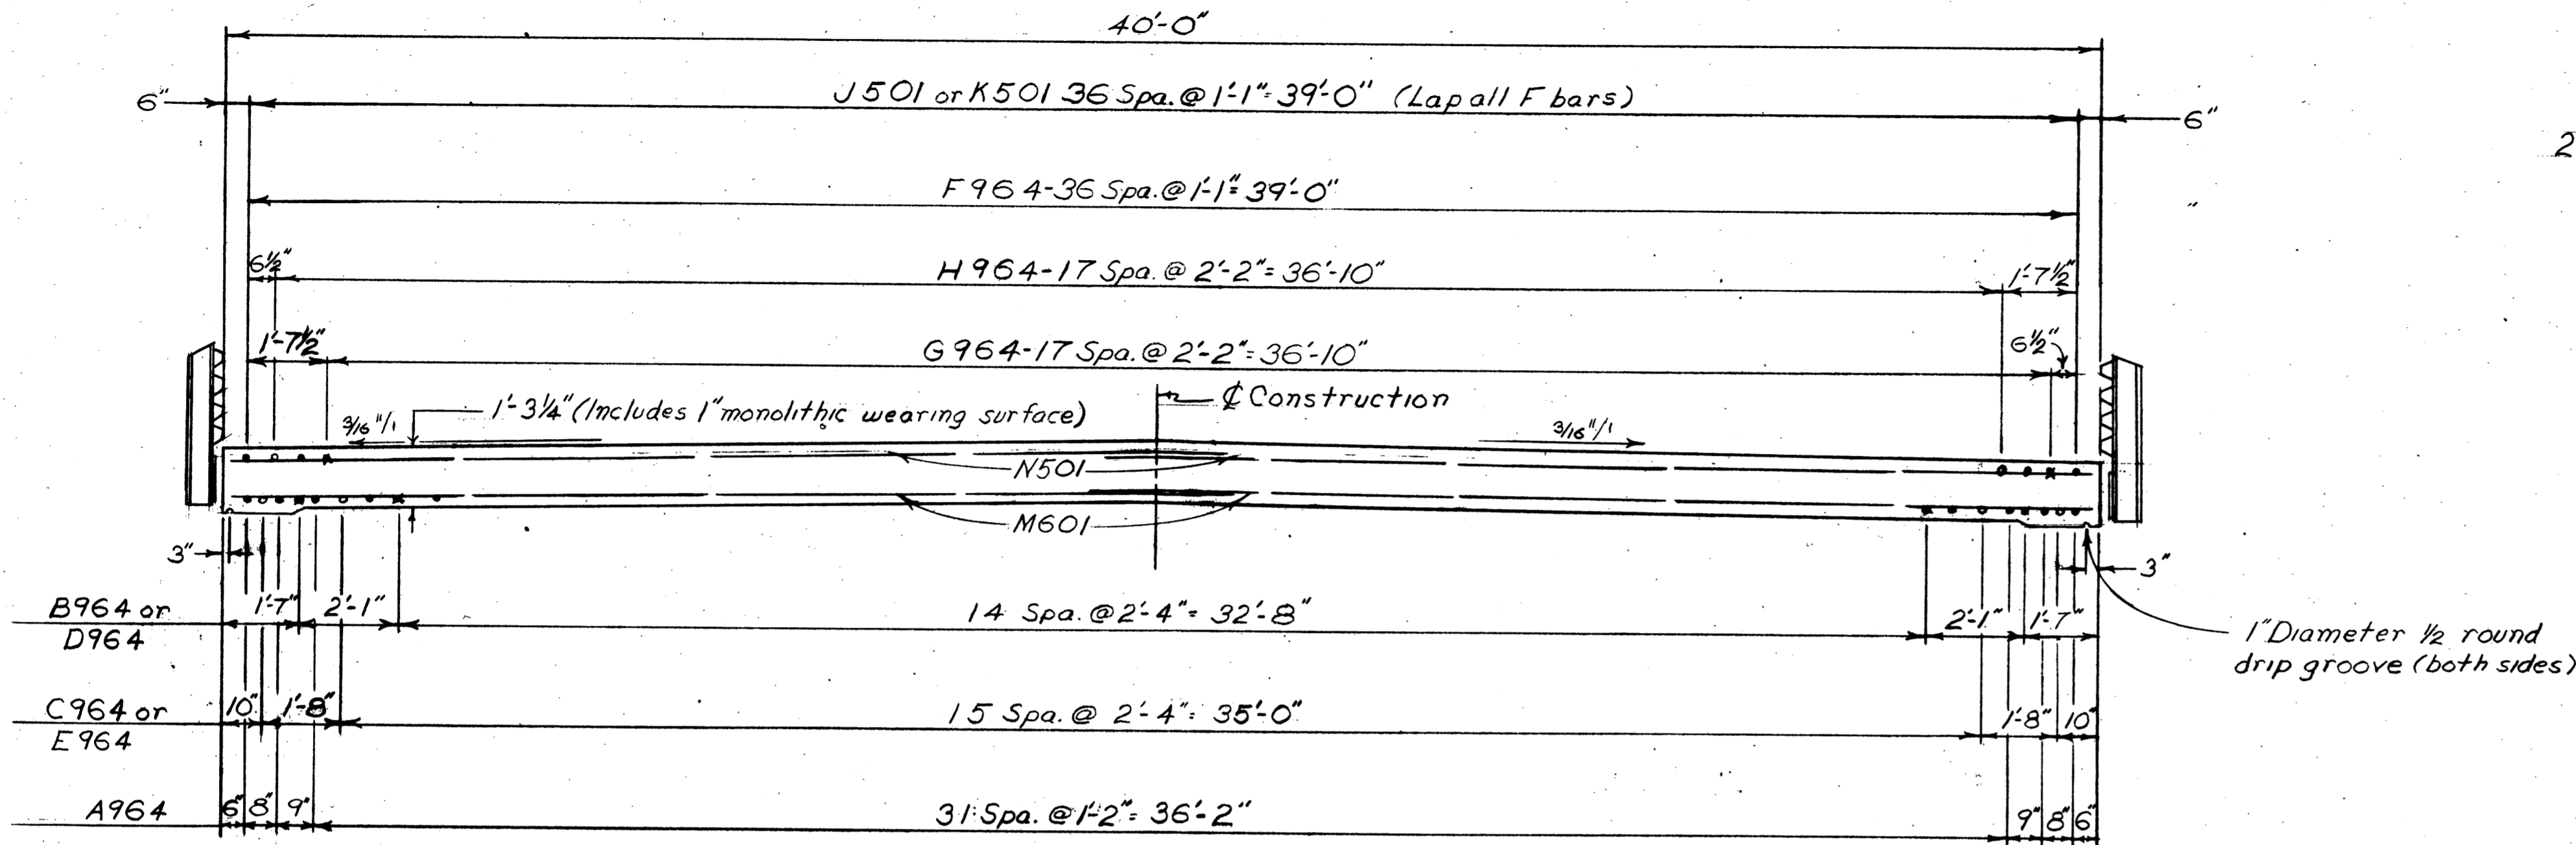 40'-0"
6"
J501 or K501 36 Spa. @ 1'-1" = 39'-0" (Lap all F bars)
6"
2
F964-36 Spa. @ 1'-1" = 39'-0"
6½"
H964-17 Spa. @ 2'-2" = 36'-10"
1'-7½"
1'-7½"
G964-17 Spa. @ 2'-2" = 36'-10"
6½"
1'-3¼" (Includes 1" monolithic wearing surface)
℄ Construction
3/16"/1
3/16"/1
N501
M601
3"
3"
B964 or
D964
1'-7"
2'-1"
14 Spa. @ 2'-4" = 32'-8"
2'-1"
1'-7"
1" Diameter ½ round
drip groove (both sides)
C964 or
E964
10"
1'-8"
15 Spa. @ 2'-4" = 35'-0"
1'-8"
10"
A964
6"
8"
9"
31 Spa. @ 1'-2" = 36'-2"
9"
8"
6"